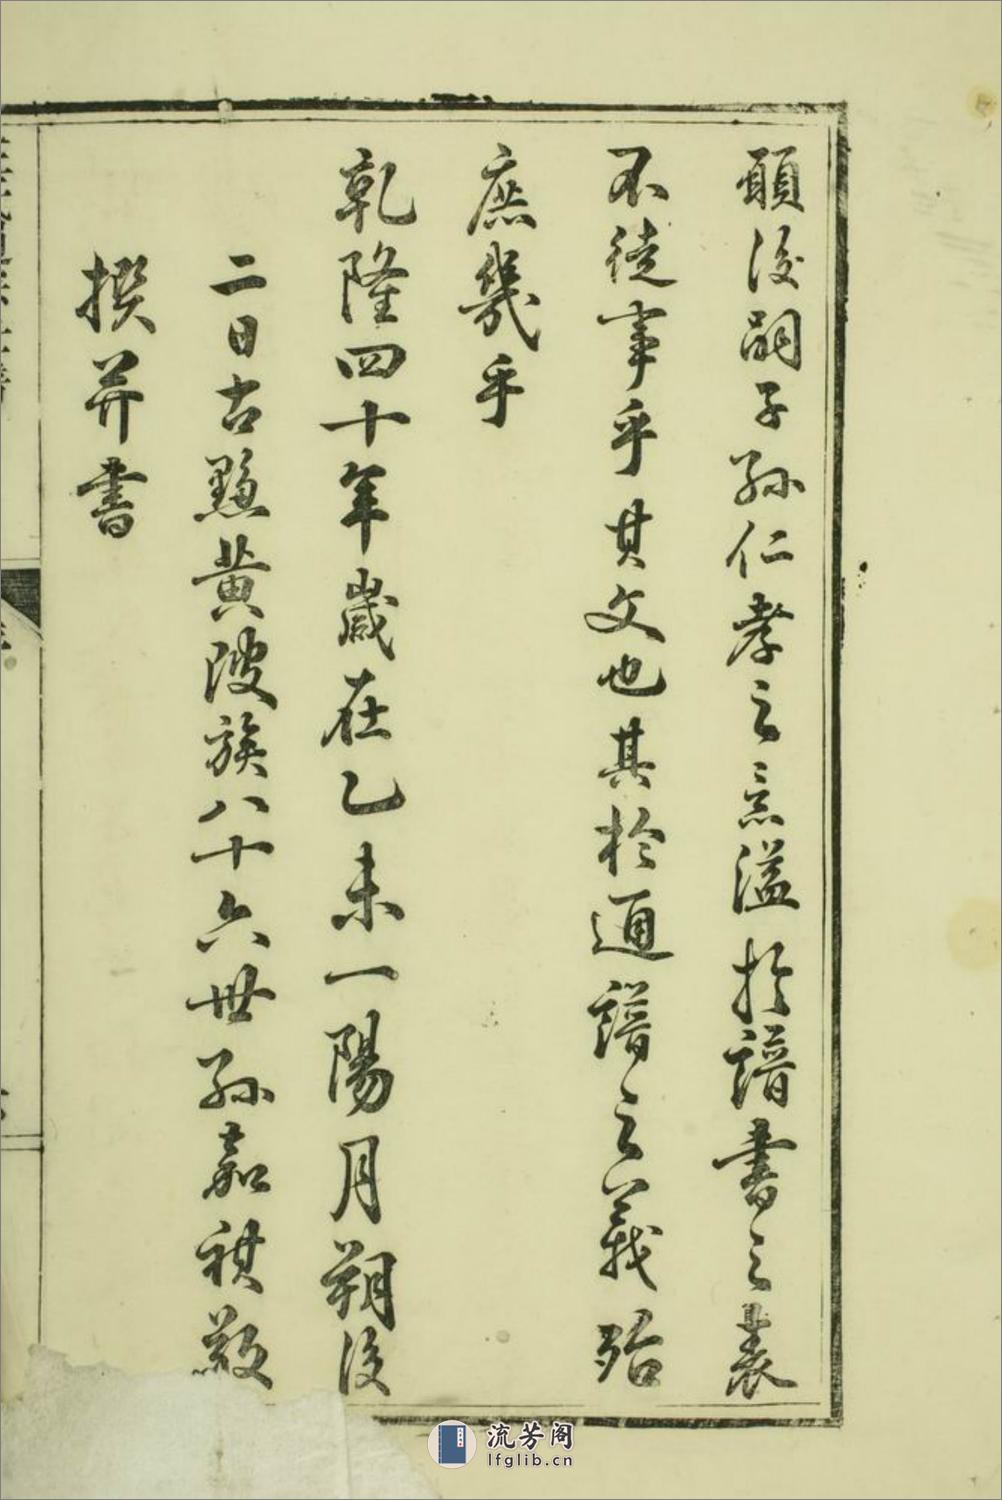 願後嗣子孫仁孝之意溢於譜書之表
不徒事乎其文也其於通譜之義殆
庶幾乎
乾隆四十年歲在乙未一陽月朔後
二日古黟黃陂族八十六世孫嘉祺敬
撰并書
流芳阁
lfglib.cn